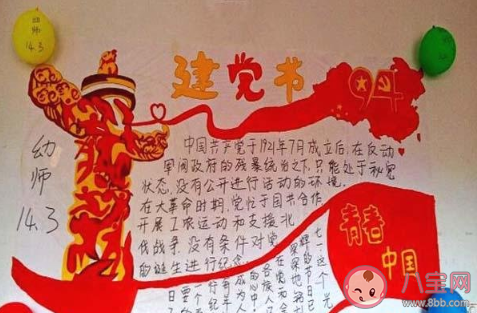 幼师
14.3
建党节
幼
师
14.3
中国共产党于1921年7月成立后,在反动
军阀政府的残暴统治之下,只能处于秘密
状态,没有公开进行活动的环境.
在大革命时期,党忙于国共合作、
开展工农运动和支援北
伐战争,没有条件对党
的诞生进行纪念.
七一这个光
辉的节日已
青春
中国
八宝网
www.8bb.com